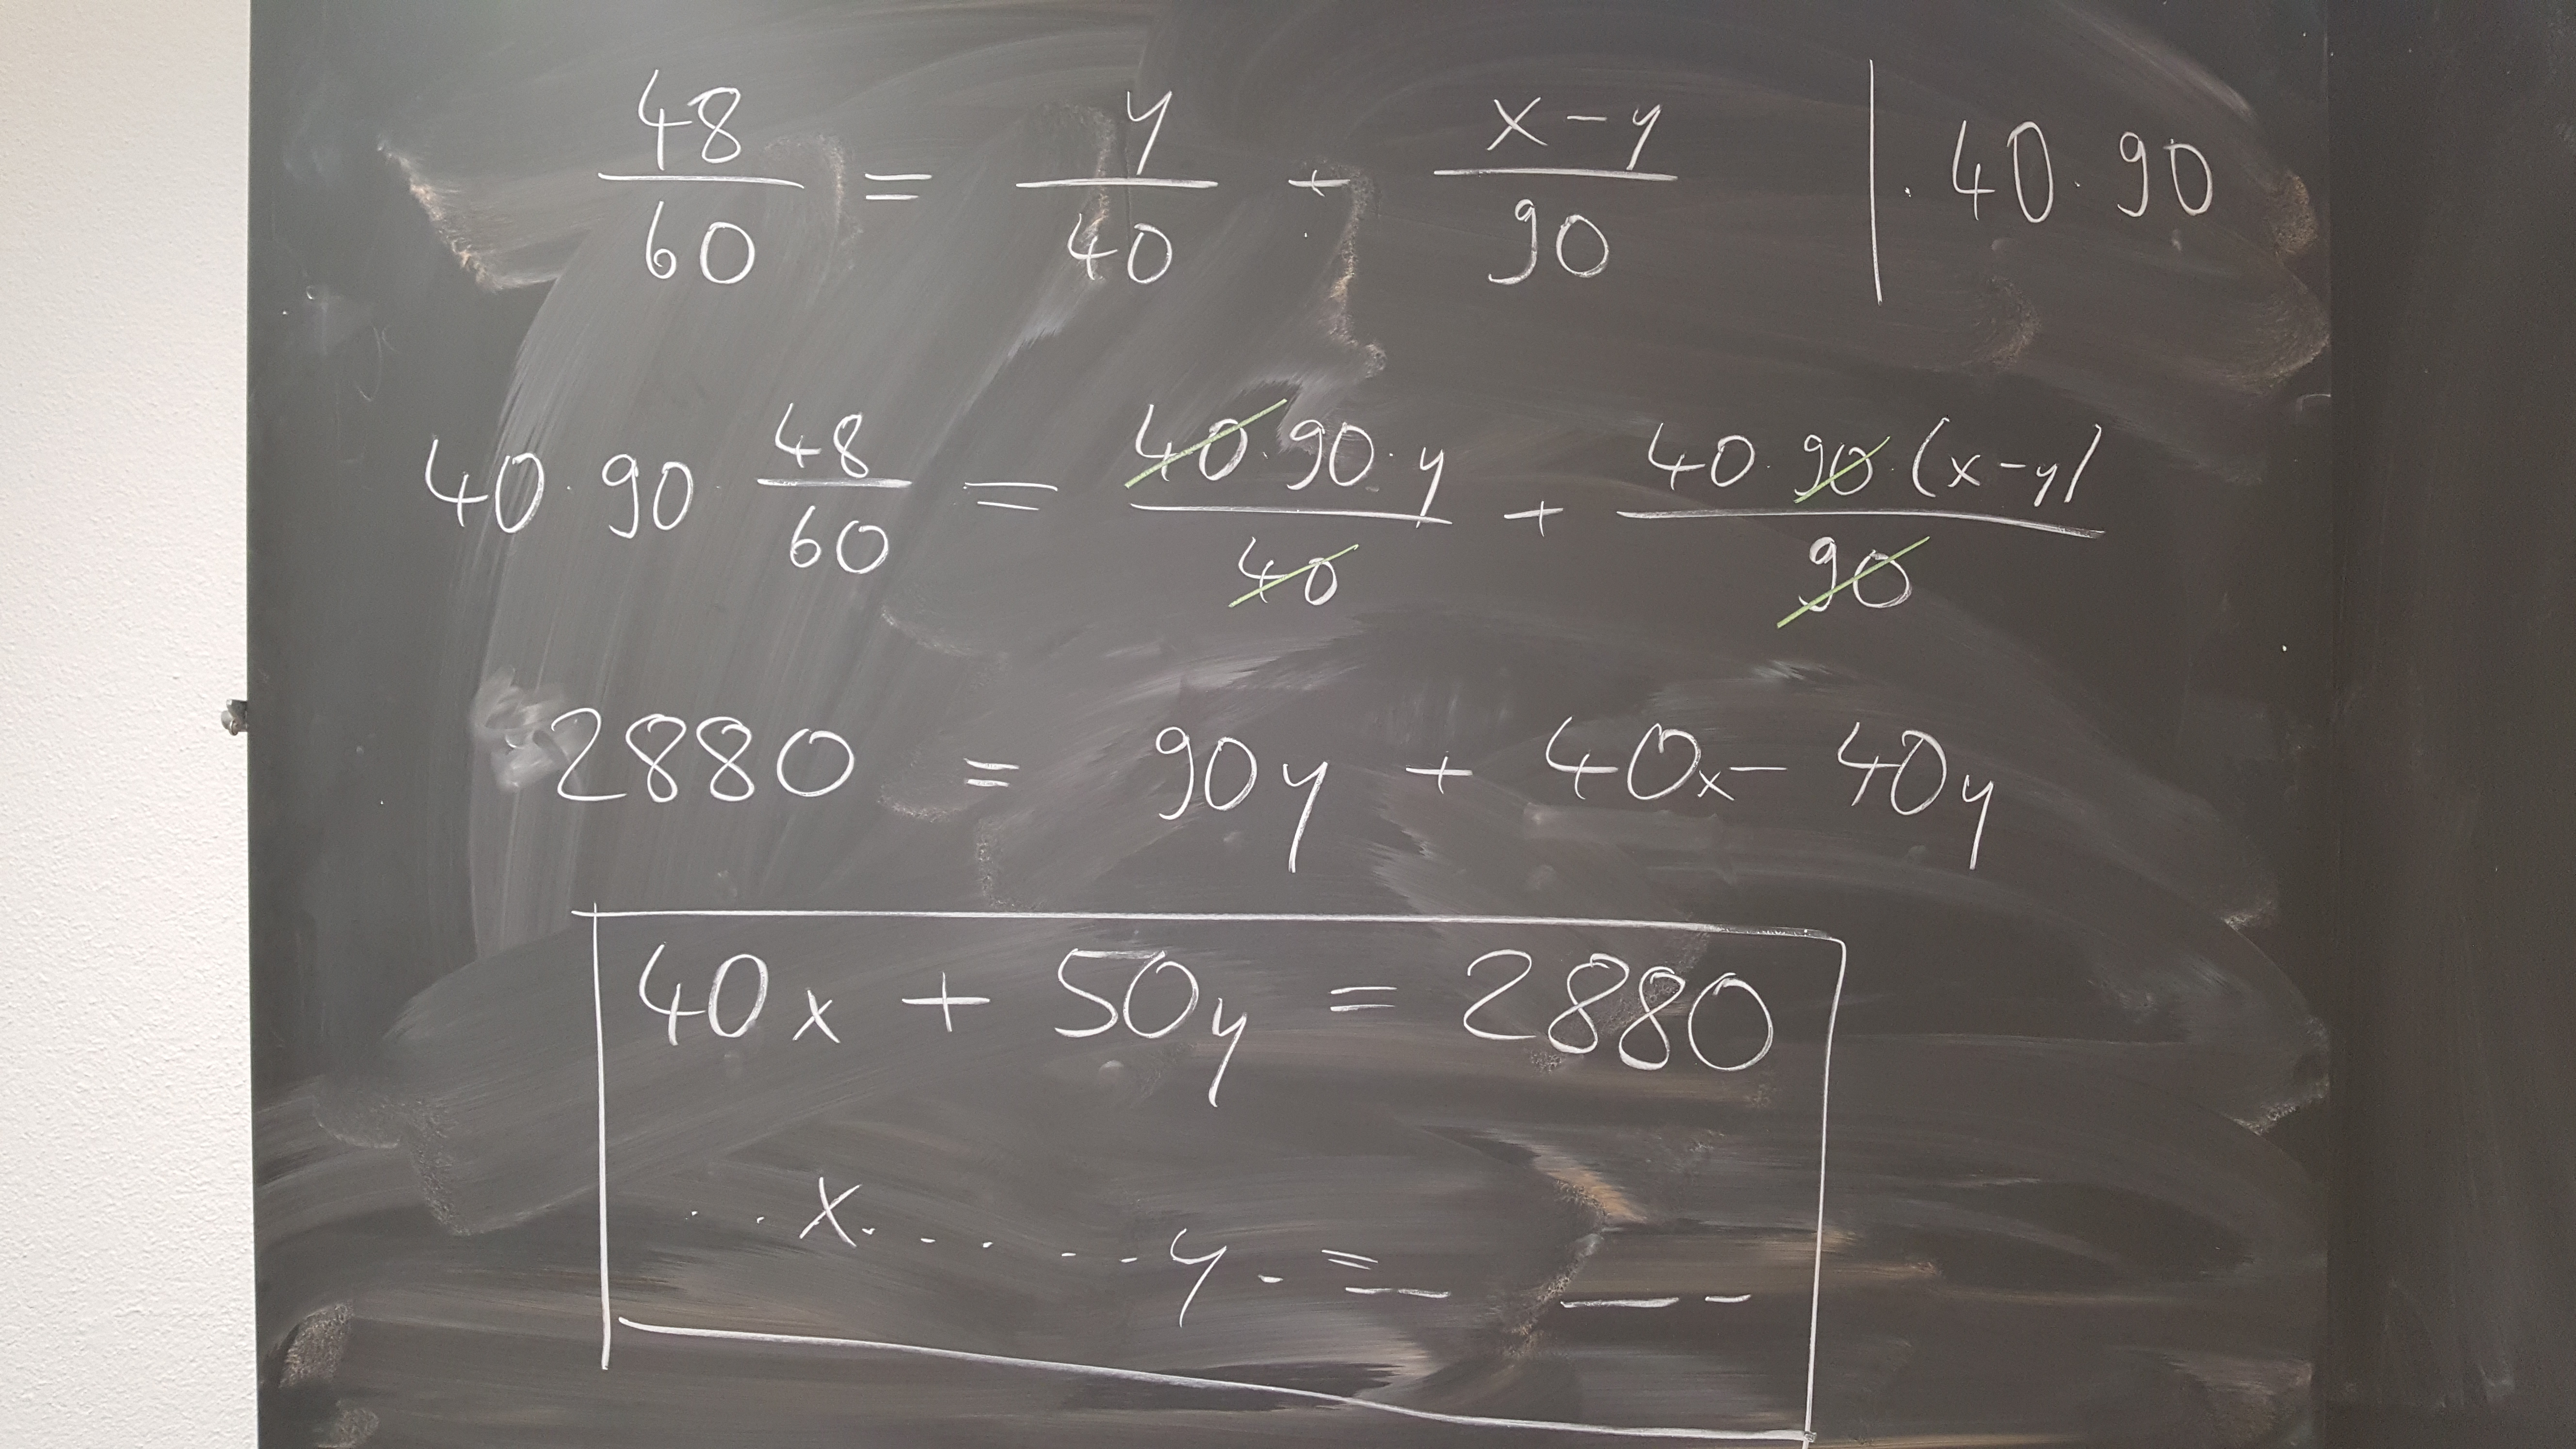 48/60 = y/40 + x-y/90 | · 40 · 90
40 · 90 · 48/60 = 40 · 90 · y/40 + 40 · 90 · (x-y)/90
2880 = 90y + 40x - 40y
40x + 50y = 2880
. . x . . . . . y . = __ __ _